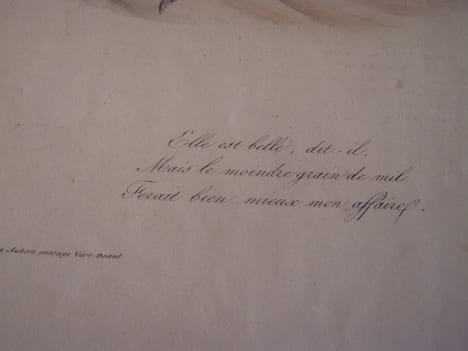 Elle est belle, dit-il,
Mais le moindre grain de mil
Ferait bien mieux mon affaire.
Aubert, passage Véro-Dodat